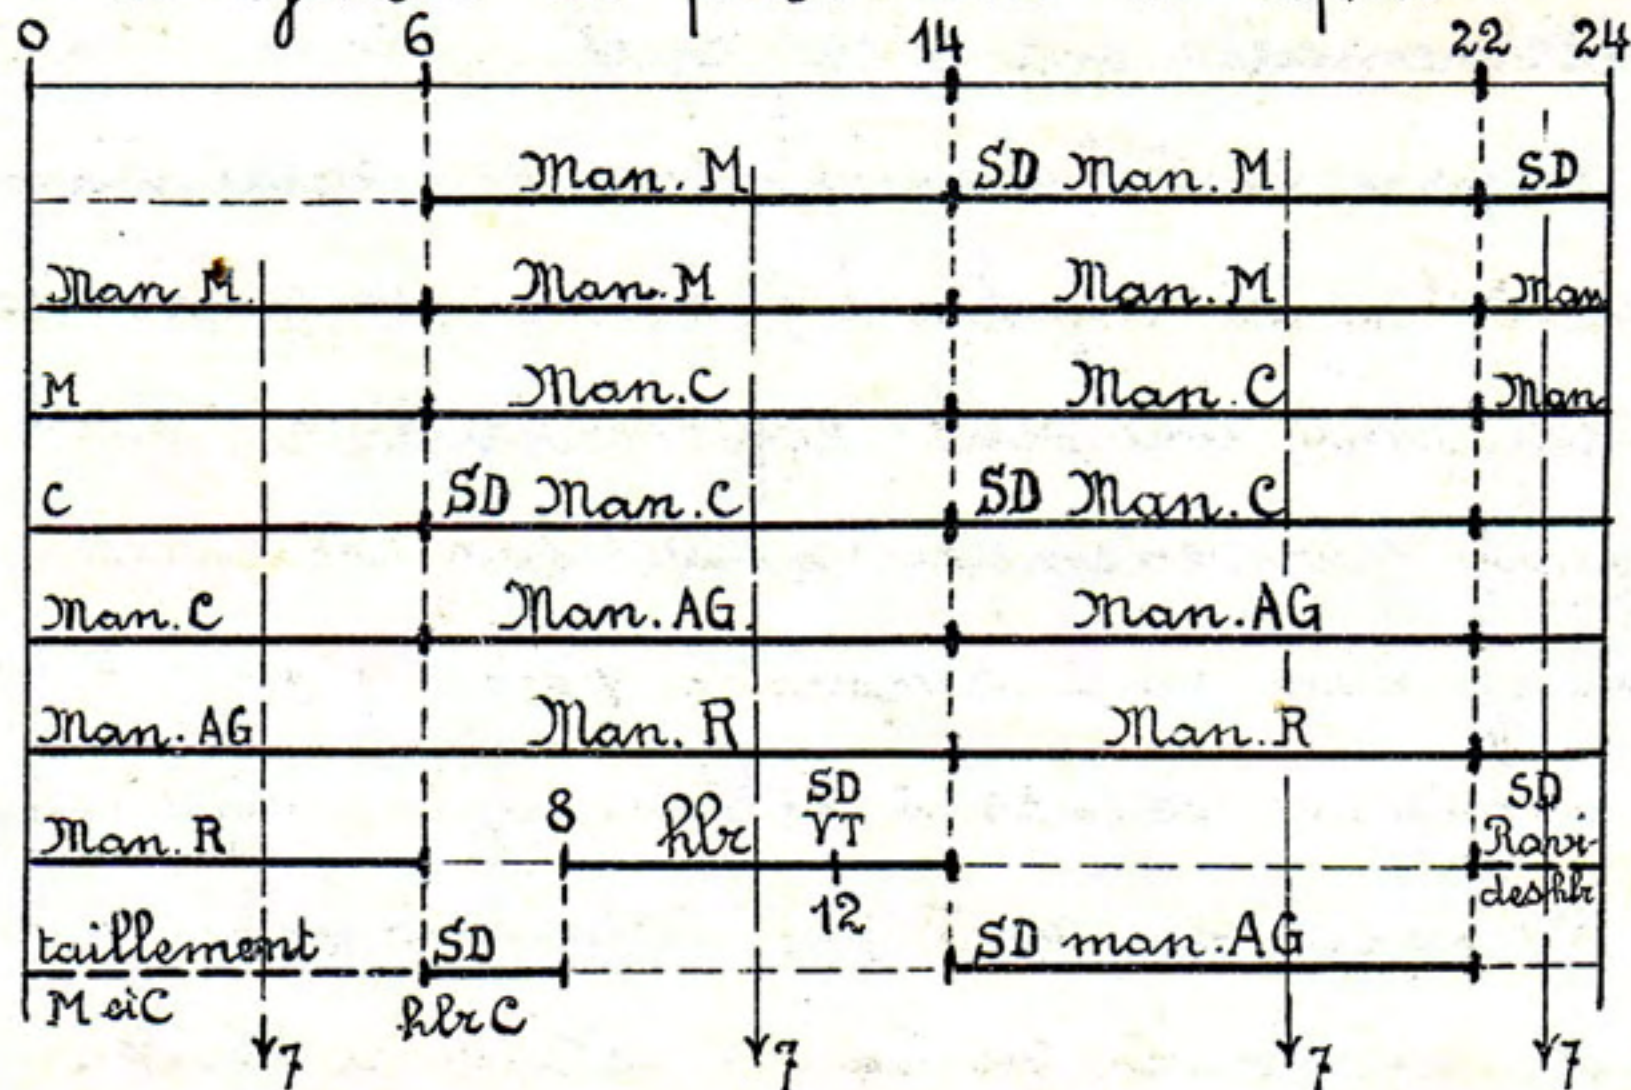 0 6 14 22 24
Man. M SD Man. M SD
Man M. Man. M Man. M Man
M Man. C Man. C Man.
C SD Man. C SD Man. C
Man. C Man. AG. Man. AG
Man. AG Man. R Man. R
Man. R 8 hlr SD VT 12 SD Ravi-
des hlr
taillement SD SD man. AG
M et C hlr C
7 7 7 7